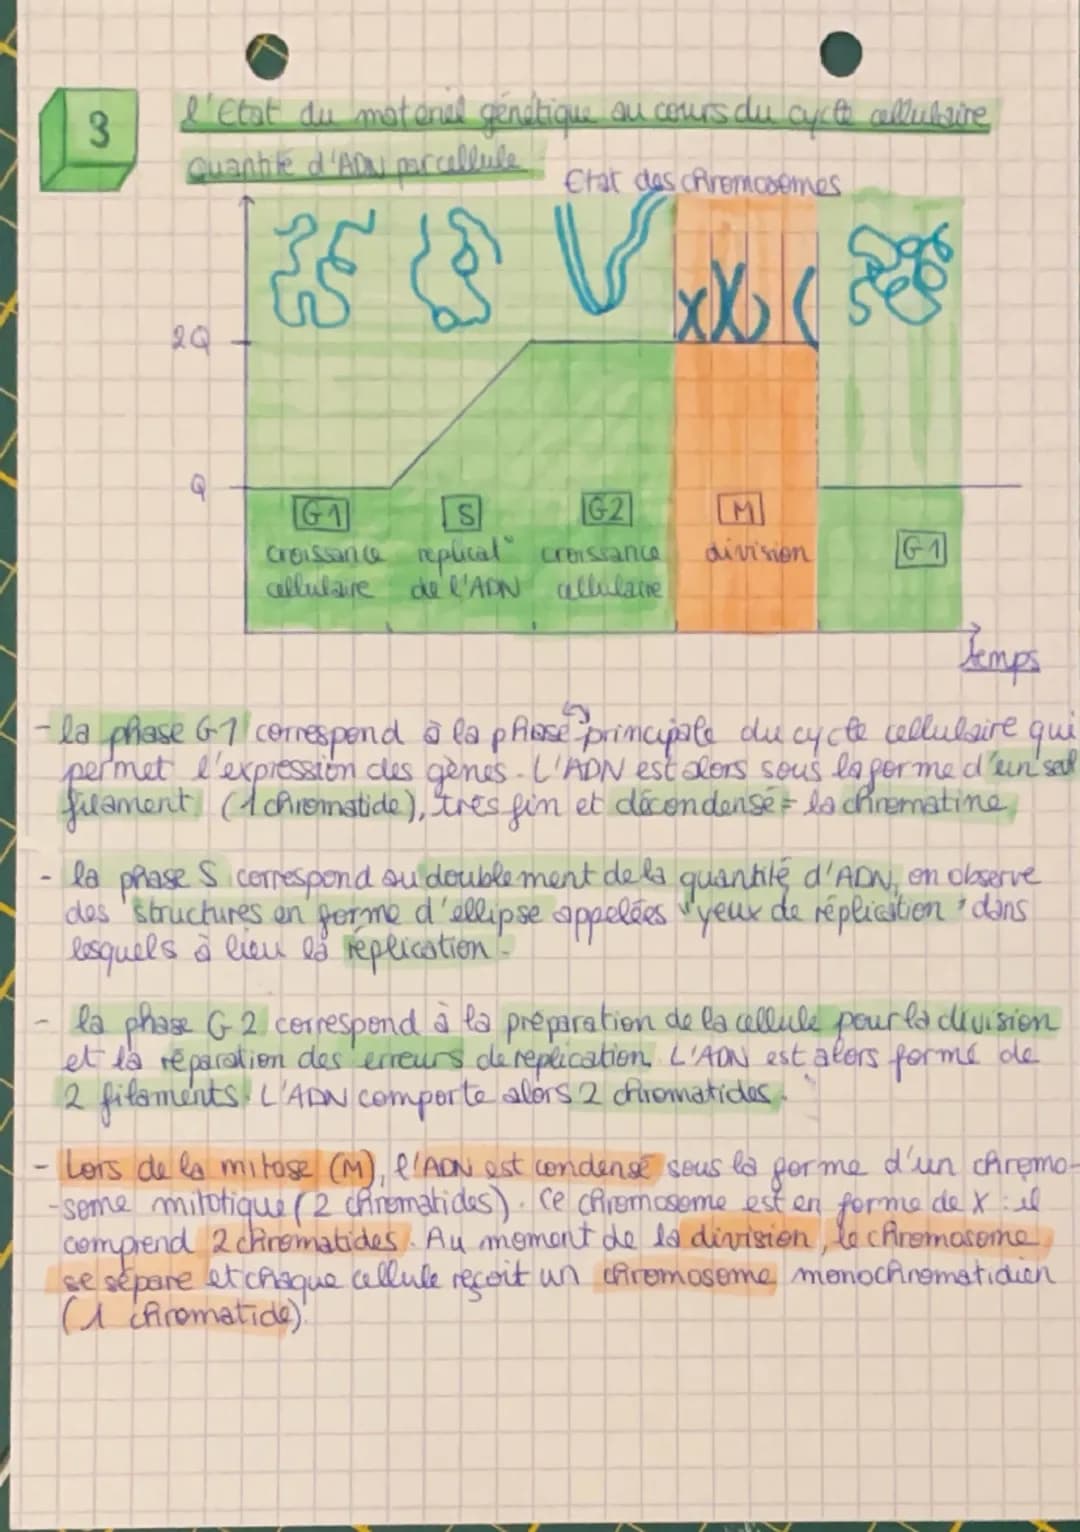 3
l'Etat du matériel génétique au cours du cycle cellulaire
Quantité d'ADN par cellule
Etat des chromosomes
2Q
Q
G1
S
G2
M
croissance cellulaire
replicat° de l'ADN
croissance cellulaire
division
G1
temps
- la phase G1 correspond à la phase principale du cycle cellulaire qui
permet l'expression des gènes. L'ADN est alors sous la forme d'un seul
filament (1 chromatide), très fin et décondensé = la chromatine
- la phase S correspond au doublement de la quantité d'ADN, on observe
des structures en forme d'ellipse appelées "yeux de réplication" dans
lesquels à lieu la réplication.
- la phase G2 correspond à la préparation de la cellule pour la division
et la réparation des erreurs de replication. L'ADN est alors formé de
2 filaments. L'ADN comporte alors 2 chromatides.
- Lors de la mitose (M), l'ADN est condensé sous la forme d'un chromo-
-some mitotique (2 chromatides). Ce chromosome est en forme de X : il
comprend 2 chromatides. Au moment de la division, le chromosome
se sépare et chaque cellule reçoit un chromosome monochromatidien
(1 chromatide).